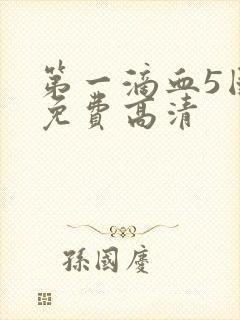 第一滴血5国
免费高清
孫國慶